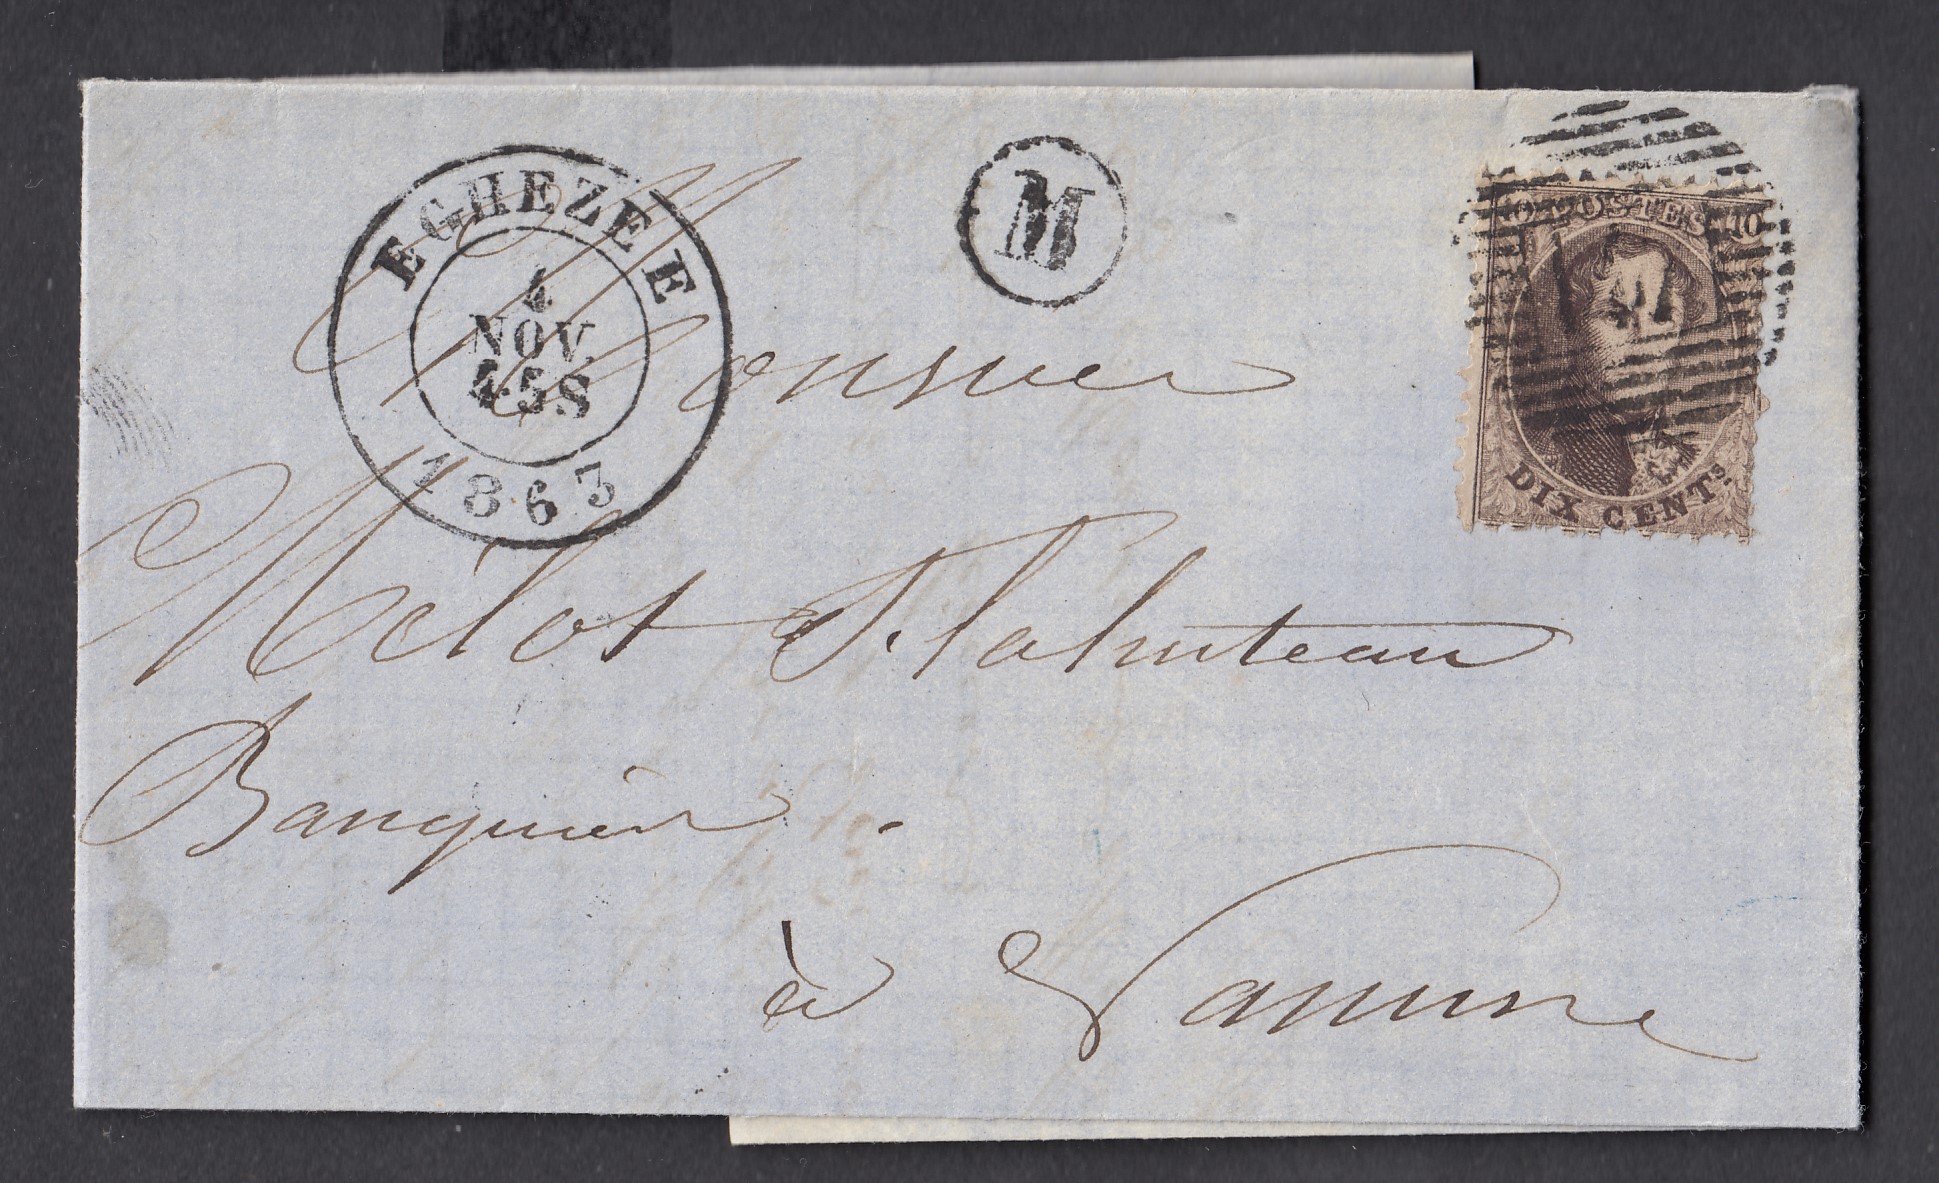 EGHEZEE
4
NOV.
4-5S
1863
M
10 POSTES 10
DIX CENTS.
Monsieur
Mélot
Banquier
à Namur